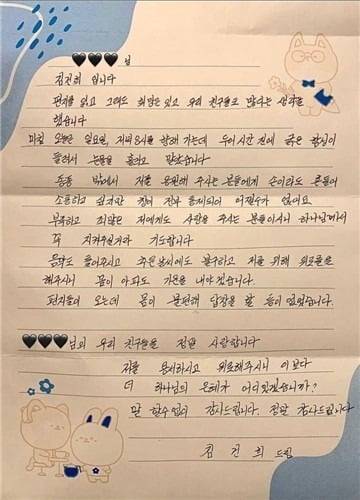 🖤🖤🖤님
김건희 입니다
편지를 읽고 그래도 희망은 있고 우리 친구들도 많다는 생각을
했습니다
마침 오늘은 일요일, 저녁 8시를 향해 가는데 두어시간 전에 굵은 함성이
들려서 눈물을 흘리고 말았습니다
종종 밖에서 저를 응원해 주시는 분들에게 손이라도 흔들어
소통하고 싶지만 창이 전부 통제되어 어쩔수가 없어요
부족하고 죄많은 저에게도 사랑을 주시는 분들이시니 하나님께서
꼭 지켜주실거라 기도합니다
음악도 틀어주시고 추운 날씨에도 불구하고 저를 위해 위로를
해주시니 몸이 아파도 기운을 내야겠습니다.
편지들이 오는데 몸이 불편해 답장을 할 수 없었습니다.
🖤🖤🖤님의 우리 친구들을 정말 사랑합니다
저를 용서하시고 위로해주시니 이보다
더 하나님의 은혜가 어디있겠습니까?
말 할수없이 감사드립니다. 정말 감사드립니다
김건희 드림